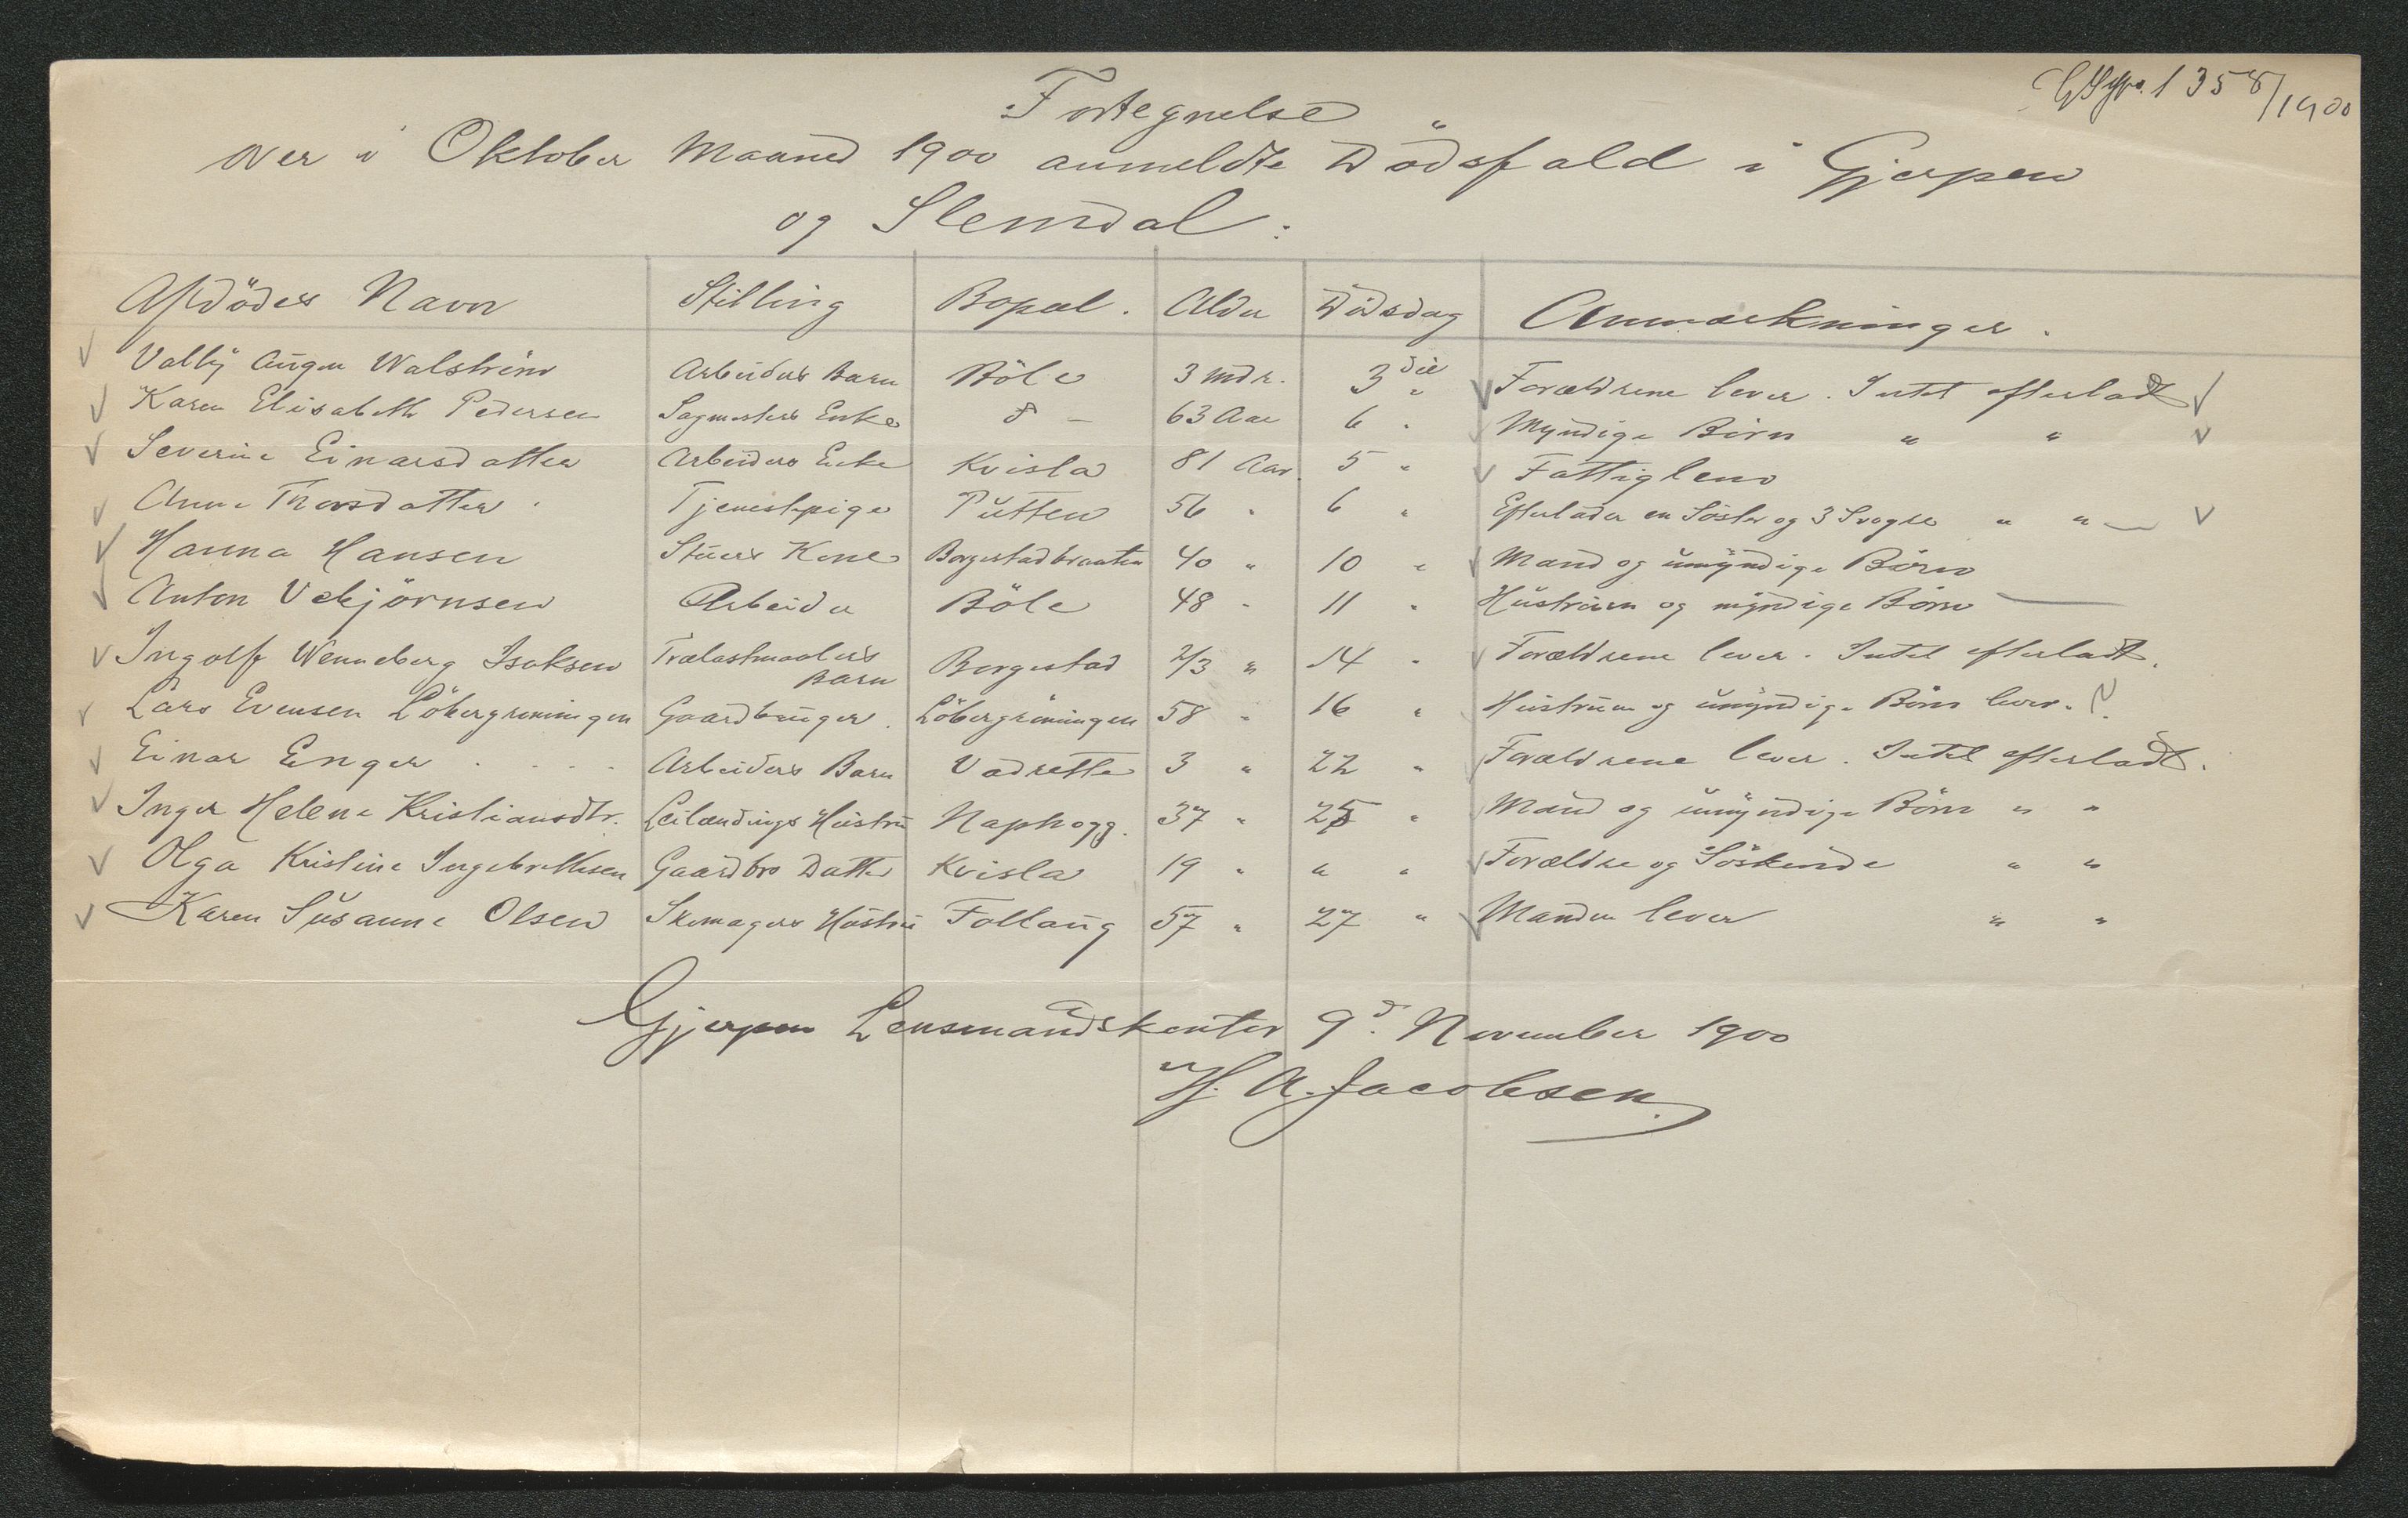 1358/1900
Fortegnelse
over i Oktober Maaned 1900 anmeldte Dödsfald i Gjerpen
og Slemdal:
Afdödes Navn Stilling Bopæl. Alder Dödsdag Anmærkninger.
Valby Walström Arbeiders Barn Böle 3 Mdr. 3die " Forældrene lever. Intet efterladt
Karen Elisabeth Pedersen Sagmesters Enke do – 63 Aar 6 " Myndige Börn " "
Severine Einarsdatter Arbeiders Enke Kvisla 81 Aar 5 " Fattiglem
Anne Thorsdatter Tjenestepige Putten 56 " 6 " Efterlader en Söster og 3 Svogre " "
Hanna Hansen Stuers Kone Borgestadbraaten 40 " 10 " Mand og umyndige Börn
Anton Vebjörnsen Arbeider Böle 48 " 11 " Hustruen og myndige Börn —
Ingolf Wenneberg Isaksen Trælastmaalers Barn Borgestad 2/3 " 14 " Forældrene lever. Intet efterladt.
Lars Evensen Löbergröningen Gaardbruger. Löbergröningen 58 " 16 " Hustruen og umyndige Börn lever.
Einar Enger . . . . Arbeiders Barn Vadrette 3 " 22 " Forældrene lever. Intet efterladt.
Inger Helene Kristiansdtr. Leilændings Hustru Naphogg. 37 " 25 " Mand og umyndige Börn " "
Olga Kristine Ingebrethsen Gaardbrs Datter Kvisla 19 " " " Forældre og Söskende " "
Karen Susanne Olsen Skomagers Hustru Follaug 57 " 27 " Manden lever " "
Gjerpen Lensmandskontor 9d. November 1900
H. A. Jacobsen.